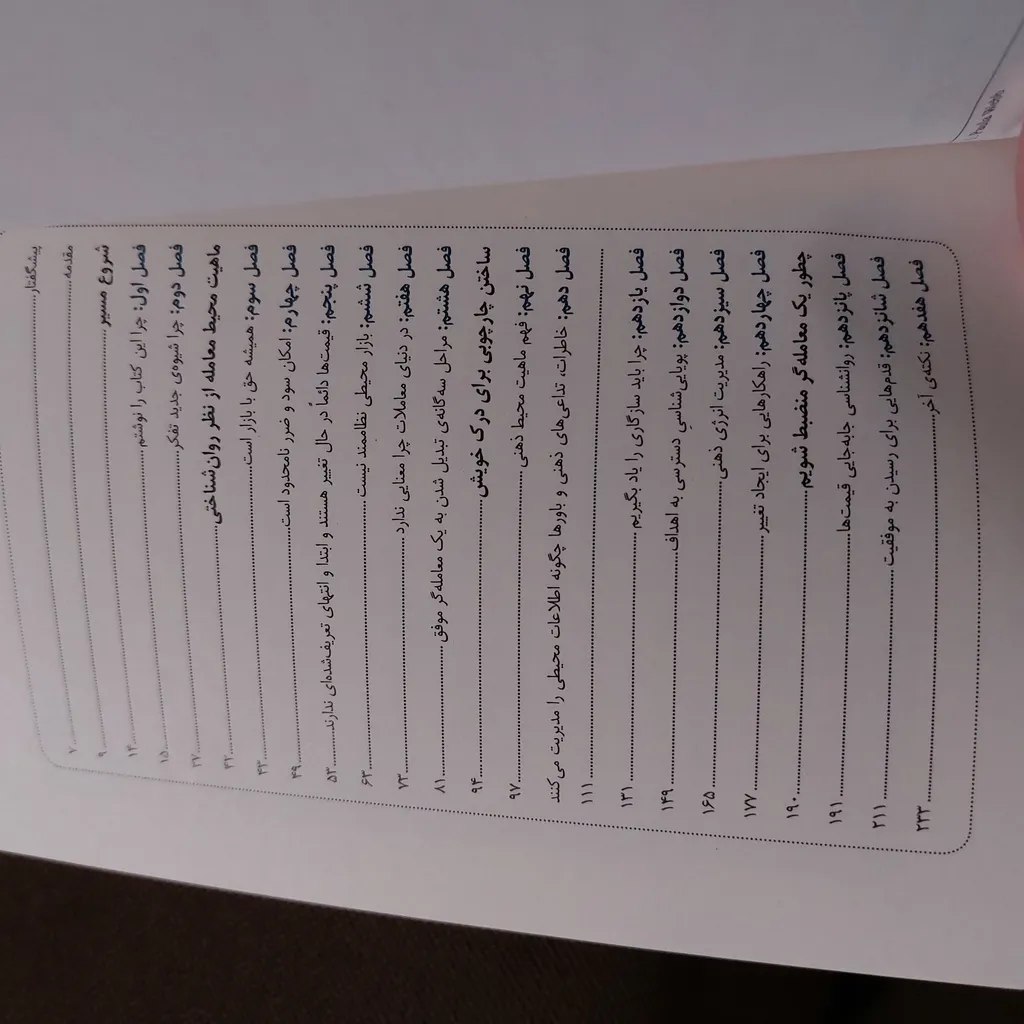 پیشگفتار ۷
مقدمه ۹
شروع مسیر ۱۴
فصل اول: چرا این کتاب را نوشتم ۱۵
فصل دوم: چرا شیوه‌ی جدید تفکر ۲۷
ماهیت محیط معامله از نظر روان‌شناختی ۴۲
فصل سوم: همیشه حق با بازار است ۴۳
فصل چهارم: امکان سود و ضرر نامحدود است ۴۹
فصل پنجم: قیمت‌ها دائماً در حال تغییر هستند و ابتدا و انتهای تعریف‌شده‌ای ندارند ۵۳
فصل ششم: بازار محیطی نظاممند نیست ۶۳
فصل هفتم: در دنیای معاملات چرا معنایی ندارد ۷۳
فصل هشتم: مراحل سه‌گانه‌ی تبدیل شدن به یک معامله‌گر موفق ۸۱
ساختن چارچوبی برای درک خویش ۹۴
فصل نهم: فهم ماهیت محیط ذهنی ۹۷
فصل دهم: خاطرات، تداعی‌های ذهنی و باورها چگونه اطلاعات محیطی را مدیریت می‌کنند
۱۱۱
فصل یازدهم: چرا باید سازگاری را یاد بگیریم ۱۳۱
فصل دوازدهم: پویایی‌شناسیِ دسترسی به اهداف ۱۴۹
فصل سیزدهم: مدیریت انرژی ذهنی ۱۶۵
فصل چهاردهم: راهکارهایی برای ایجاد تغییر ۱۷۷
چطور یک معامله‌گر منضبط شویم ۱۹۰
فصل پانزدهم: روانشناسی جابه‌جایی قیمت‌ها ۱۹۱
فصل شانزدهم: قدم‌هایی برای رسیدن به موفقیت ۲۱۱
فصل هفدهم: نکته‌ی آخر ۲۳۳